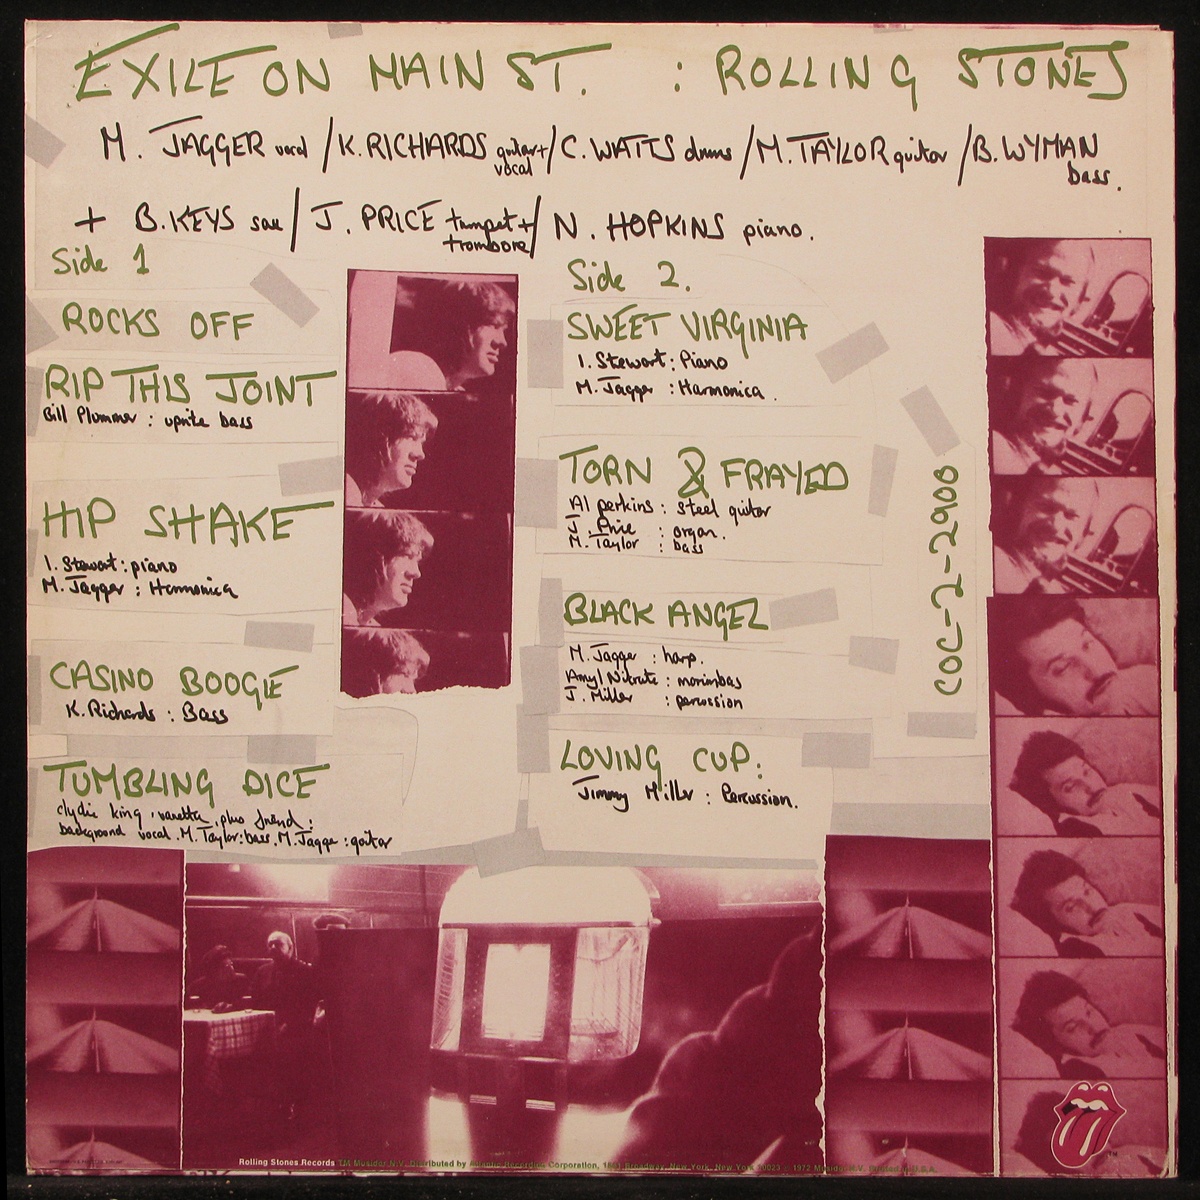 EXILE ON MAIN ST. : ROLLING STONES
M. JAGGER vocal / K. RICHARDS guitar + vocal / C. WATTS drums / M. TAYLOR guitar / B. WYMAN bass.
+ B. KEYS sax / J. PRICE trumpet + trombone / N. HOPKINS piano.
Side 1
ROCKS OFF
RIP THIS JOINT
Bill Plummer : uprite bass
HIP SHAKE
I. Stewart : piano
M. Jagger : Harmonica
CASINO BOOGIE
K. Richards : Bass
TUMBLING DICE
clydie king, vanetta, plus friend :
background vocal. M. Taylor: bass. M. Jagger : guitar
Side 2.
SWEET VIRGINIA
I. Stewart : Piano
M. Jagger : Harmonica.
TORN & FRAYED
Al perkins : steel guitar
J. Price : organ.
M. Taylor : bass
BLACK ANGEL
M. Jagger : harp.
Amyl Nitrate : marimbas
J. Miller : percussion
LOVING CUP:
Jimmy Miller : Percussion.
COC-2-2900
Rolling Stones Records TM Musidor N.V. Distributed by Atlantic Recording Corporation, 1841 Broadway, New York, New York 10023 © 1972 Musidor N.V. Printed in U.S.A.
TM